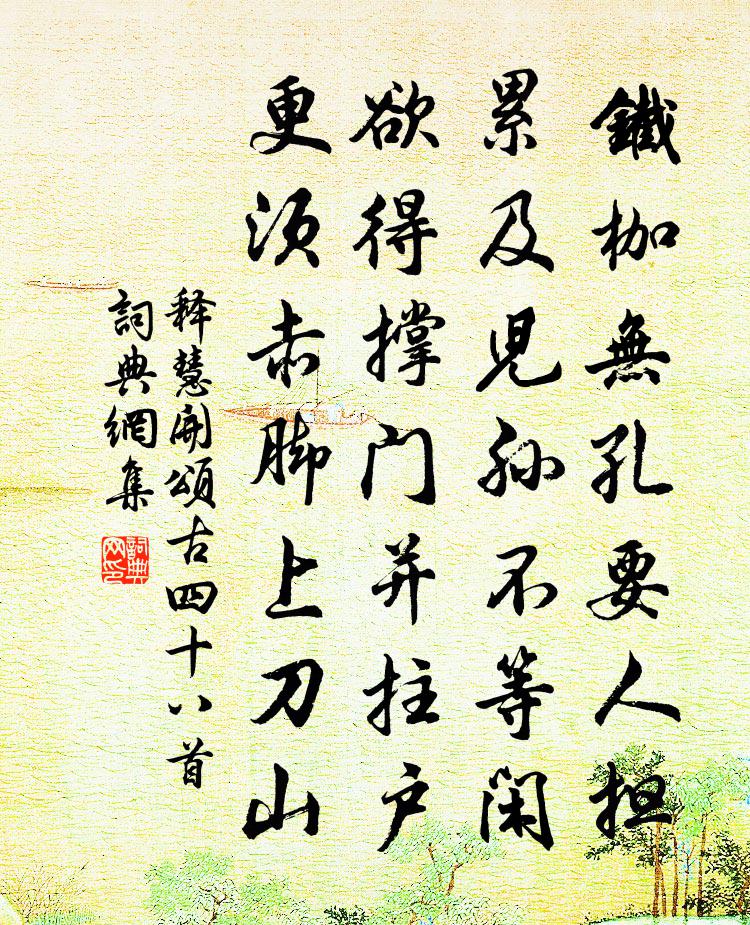 鐵枷無孔要人担
累及児孫不等閑
欲得撑门并拄户
更须赤脚上刀山
释慧開頌古四十八首
詞典網集
詞典网印